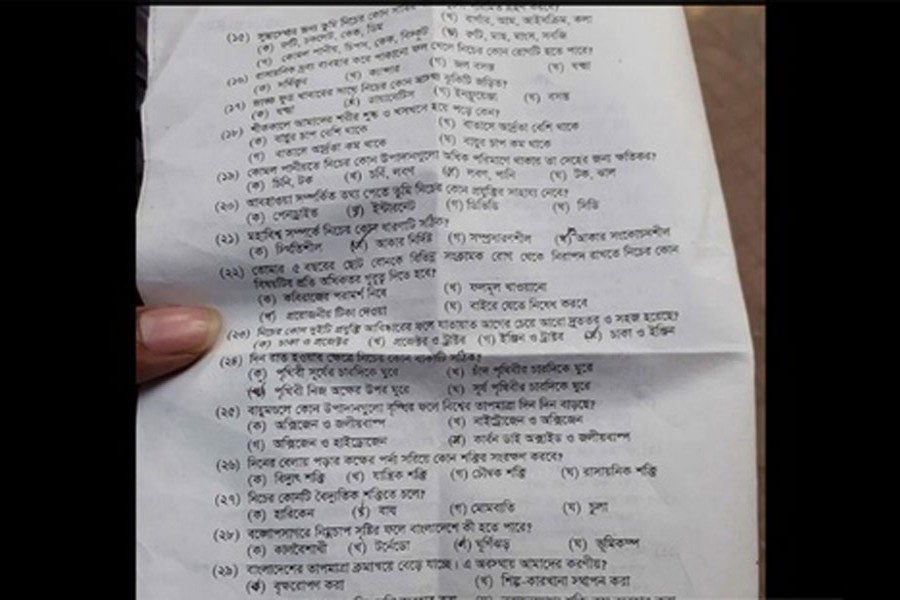 (খ) বার্গার, আম, আইসক্রিম, কলা
(১৫) সুস্বাস্থ্যের জন্য তুমি নিচের কোন
(ক) রুটি, চকলেট, কেক, ডিম
(ঘ) রুটি, মাছ, মাংস, সবজি
(গ) কোমল পানীয়, চিপস, কেক, বিস্কুট
(১৬) রাসায়নিক দ্রব্য ব্যবহার করে পাকানো ফল খেলে নিচের কোন রোগটি হতে পারে?
(ক) সর্দিজ্বর (খ) ক্যান্সার (গ) জল বসন্ত (ঘ) যক্ষ্মা
(১৭) জাঙ্ক ফুড খাবারের সাথে নিচের কোন স্বাস্থ্য ঝুকিটি জড়িত?
(ক) যক্ষ্মা (খ) ডায়াবেটিস (গ) ইনফ্লুয়েঞ্জা (ঘ) বসন্ত
(১৮) শীতকালে আমাদের শরীর শুষ্ক ও খসখসে হয়ে পড়ে কেন?
(ক) বায়ুর চাপ বেশি থাকে (খ) বাতাসে আর্দ্রতা বেশি থাকে
(গ) বাতাসে আর্দ্রতা কম থাকে (ঘ) বায়ুর চাপ কম থাকে
(১৯) কোমল পানীয়তে নিচের কোন উপাদানগুলো অধিক পরিমাণে থাকায় তা দেহের জন্য ক্ষতিকর?
(ক) চিনি, টক (খ) চর্বি, লবণ (গ) লবণ, পানি (ঘ) টক, ঝাল
(২০) আবহাওয়া সম্পর্কিত তথ্য পেতে তুমি নিচের কোন প্রযুক্তির সাহায্য নেবে?
(ক) পেনড্রাইভ (খ) ইন্টারনেট (গ) ডিভিডি (ঘ) সিডি
(২১) মহাবিশ্ব সম্পর্কে নিচের কোন ধারণাটি সঠিক?
(ক) স্থিতিশীল (খ) আকার নির্দিষ্ট (গ) সম্প্রসারণশীল (ঘ) আকার সংকোচনশীল
(২২) তোমার ৫ বছরের ছোট বোনকে বিভিন্ন সংক্রামক রোগ থেকে নিরাপদ রাখতে নিচের কোন
বিষয়টির প্রতি অধিকতর গুরুত্ব দিতে হবে?
(ক) কবিরাজের পরামর্শ নিবে (খ) ফলমূল খাওয়ানো
(গ) প্রয়োজনীয় টিকা দেওয়া (ঘ) বাইরে যেতে নিষেধ করবে
(২৩) নিচের কোন দুইটি প্রযুক্তি আবিষ্কারের ফলে যাতায়াত আগের চেয়ে আরো দ্রুততর ও সহজ হয়েছে?
(ক) চাকা ও প্রজেক্টর (খ) প্রজেক্টর ও ট্রাক্টর (গ) ইঞ্জিন ও ট্রাক্টর (ঘ) চাকা ও ইঞ্জিন
(২৪) দিন রাত হওয়ার ক্ষেত্রে নিচের কোন বাক্যটি সঠিক?
(ক) পৃথিবী সূর্যের চারদিকে ঘুরে (খ) চাঁদ পৃথিবীর চারদিকে ঘুরে
(গ) পৃথিবী নিজ অক্ষের উপর ঘুরে (ঘ) সূর্য পৃথিবীর চারদিকে ঘুরে
(২৫) বায়ুমণ্ডলে কোন উপাদানগুলো বৃদ্ধির ফলে বিশ্বের তাপমাত্রা দিন দিন বাড়ছে?
(ক) অক্সিজেন ও জলীয়বাষ্প (খ) নাইট্রোজেন ও অক্সিজেন
(গ) অক্সিজেন ও হাইড্রোজেন (ঘ) কার্বন ডাই অক্সাইড ও জলীয়বাষ্প
(২৬) দিনের বেলায় পড়ার কক্ষের পর্দা সরিয়ে কোন শক্তির সংরক্ষণ করবে?
(ক) বিদ্যুৎ শক্তি (খ) যান্ত্রিক শক্তি (গ) চৌম্বক শক্তি (ঘ) রাসায়নিক শক্তি
(২৭) নিচের কোনটি বৈদ্যুতিক শক্তিতে চলে?
(ক) হারিকেন (খ) বাল্ব (গ) মোমবাতি (ঘ) চুলা
(২৮) বঙ্গোপসাগরে নিম্নচাপ সৃষ্টির ফলে বাংলাদেশে কী হতে পারে?
(ক) কালবৈশাখী (খ) টর্নেডো (গ) ঘূর্ণিঝড় (ঘ) ভূমিকম্প
(২৯) বাংলাদেশের তাপমাত্রা ক্রমান্বয়ে বেড়ে যাচ্ছে। এ অবস্থায় আমাদের করণীয়?
(ক) বৃক্ষরোপণ করা (খ) শিল্প-কারখানা স্থাপন করা